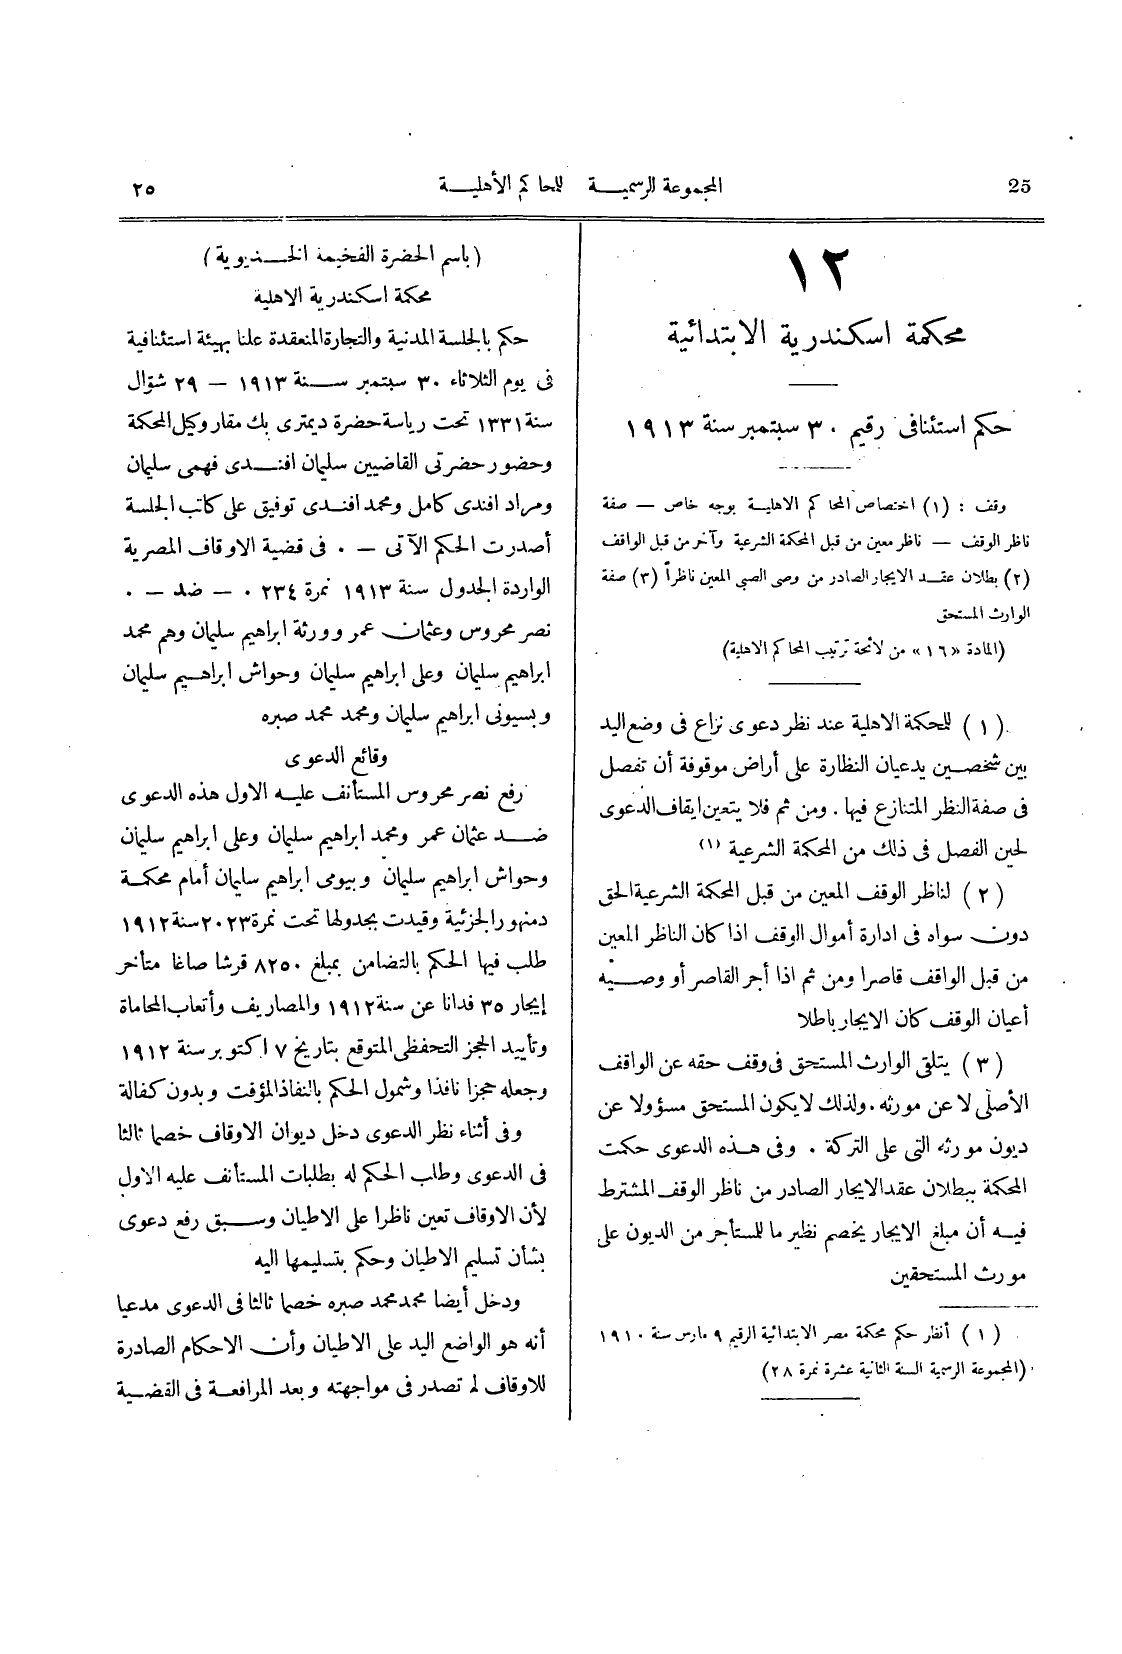 25
المجموعة الرسمية للمحاكم الأهلية
٢٥
١٢
محكمة اسكندرية الابتدائية
حكم استئنافى رقيم ٣٠ سبتمبر سنة ١٩١٣
وقف : (١) اختصاص المحاكم الاهلية بوجه خاص — صفة
ناظر الوقف — ناظر معين من قبل المحكمة الشرعية وآخر من قبل الواقف
(٢) بطلان عقد الايجار الصادر من وصى الصبى المعين ناظراً (٣) صفة
الوارث المستحق
(المادة «١٦» من لائحة ترتيب المحاكم الاهلية)
(١) للمحكمة الاهلية عند نظر دعوى نزاع فى وضع اليد
بين شخصين يدعيان النظارة على أراض موقوفة أن تفصل
فى صفة النظر المتنازع فيها . ومن ثم فلا يتعين ايقاف الدعوى
لحين الفصل فى ذلك من المحكمة الشرعية (١)
(٢) لناظر الوقف المعين من قبل المحكمة الشرعية الحق
دون سواه فى ادارة أموال الوقف اذا كان الناظر المعين
من قبل الواقف قاصرا ومن ثم اذا أجر القاصر أو وصيه
أعيان الوقف كان الايجار باطلا
(٣) يتلقى الوارث المستحق فى وقف حقه عن الواقف
الأصلى لا عن مورثه . ولذلك لا يكون المستحق مسؤولا عن
ديون مورثه التى على التركة . وفى هذه الدعوى حكمت
المحكمة ببطلان عقد الايجار الصادر من ناظر الوقف المشترط
فيه أن مبلغ الايجار يخصم نظير ما للمستأجر من الديون على
مورث المستحقين
(١) أنظر حكم محكمة مصر الابتدائية الرقيم ٩ مارس سنة ١٩١٠
(المجموعة الرسمية السنة الثانية عشرة نمرة ٢٨)
(باسم الحضرة الفخيمة الخديوية)
محكمة اسكندرية الاهلية
حكم بالجلسة المدنية والتجارة المنعقدة علنا بهيئة استئنافية
فى يوم الثلاثاء ٣٠ سبتمبر سنة ١٩١٣ — ٢٩ شؤال
سنة ١٣٣١ تحت رياسة حضرة ديمترى بك مقار وكيل المحكمة
وحضور حضرتى القاضيين سليمان افندى فهمى سليمان
ومراد افندى كامل ومحمد افندى توفيق على كاتب الجلسة
أصدرت الحكم الآتى — . فى قضية الاوقاف المصرية
الواردة الجدول سنة ١٩١٣ نمرة ٢٣٤ . — ضد — .
نصر محروس وعثمان عمر وورثة ابراهيم سليمان وهم محمد
ابراهيم سليمان وعلى ابراهيم سليمان وحواش ابراهيم سليمان
وبسيونى ابراهيم سليمان ومحمد محمد صبره
وقائع الدعوى
رفع نصر محروس المستأنف عليه الاول هذه الدعوى
ضد عثمان عمر ومحمد ابراهيم سليمان وعلى ابراهيم سليمان
وحواش ابراهيم سليمان وبيومى ابراهيم سليمان أمام محكمة
دمنهور الجزئية وقيدت بجدولها تحت نمرة ٢٠٢٣ سنة ١٩١٢
طلب فيها الحكم بالتضامن بمبلغ ٨٢٥٠ قرشا صاغا متأخر
إيجار ٣٥ فدانا عن سنة ١٩١٢ والمصاريف وأتعاب المحاماة
وتأييد الحجز التحفظى المتوقع بتاريخ ٧ اكتوبر سنة ١٩١٢
وجعله حجزا نافذا وشمول الحكم بالنفاذ المؤقت وبدون كفالة
وفى أثناء نظر الدعوى دخل ديوان الاوقاف خصما ثالثا
فى الدعوى وطلب الحكم له بطلبات المستأنف عليه الاول
لأن الاوقاف تعين ناظرا على الاطيان وسبق رفع دعوى
بشأن تسليم الاطيان وحكم بتسليمها اليه
ودخل أيضا محمد محمد صبره خصما ثالثا فى الدعوى مدعيا
أنه هو الواضع اليد على الاطيان وأن الاحكام الصادرة
للاوقاف لم تصدر فى مواجهته وبعد المرافعة فى القضية